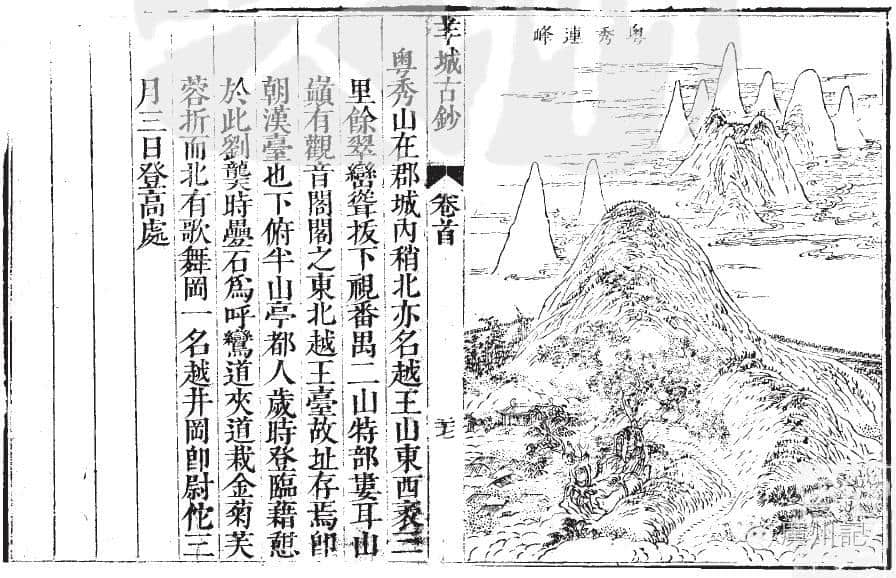 粵秀連峰
羊城古鈔
卷首
粵秀山在郡城內稍北亦名越王山東西袤三
里餘翠巒聳拔下視番禺二山特部婁耳山
嶺有觀音閣閣之東北越王臺故址存焉卽
朝漢臺也下俯半山亭都人歲時登臨藉憇
於此劉龑時疊石爲呼鸞道夾道栽金菊芙
蓉折而北有歌舞岡一名越井岡卽尉佗三
月三日登高處
廣州記